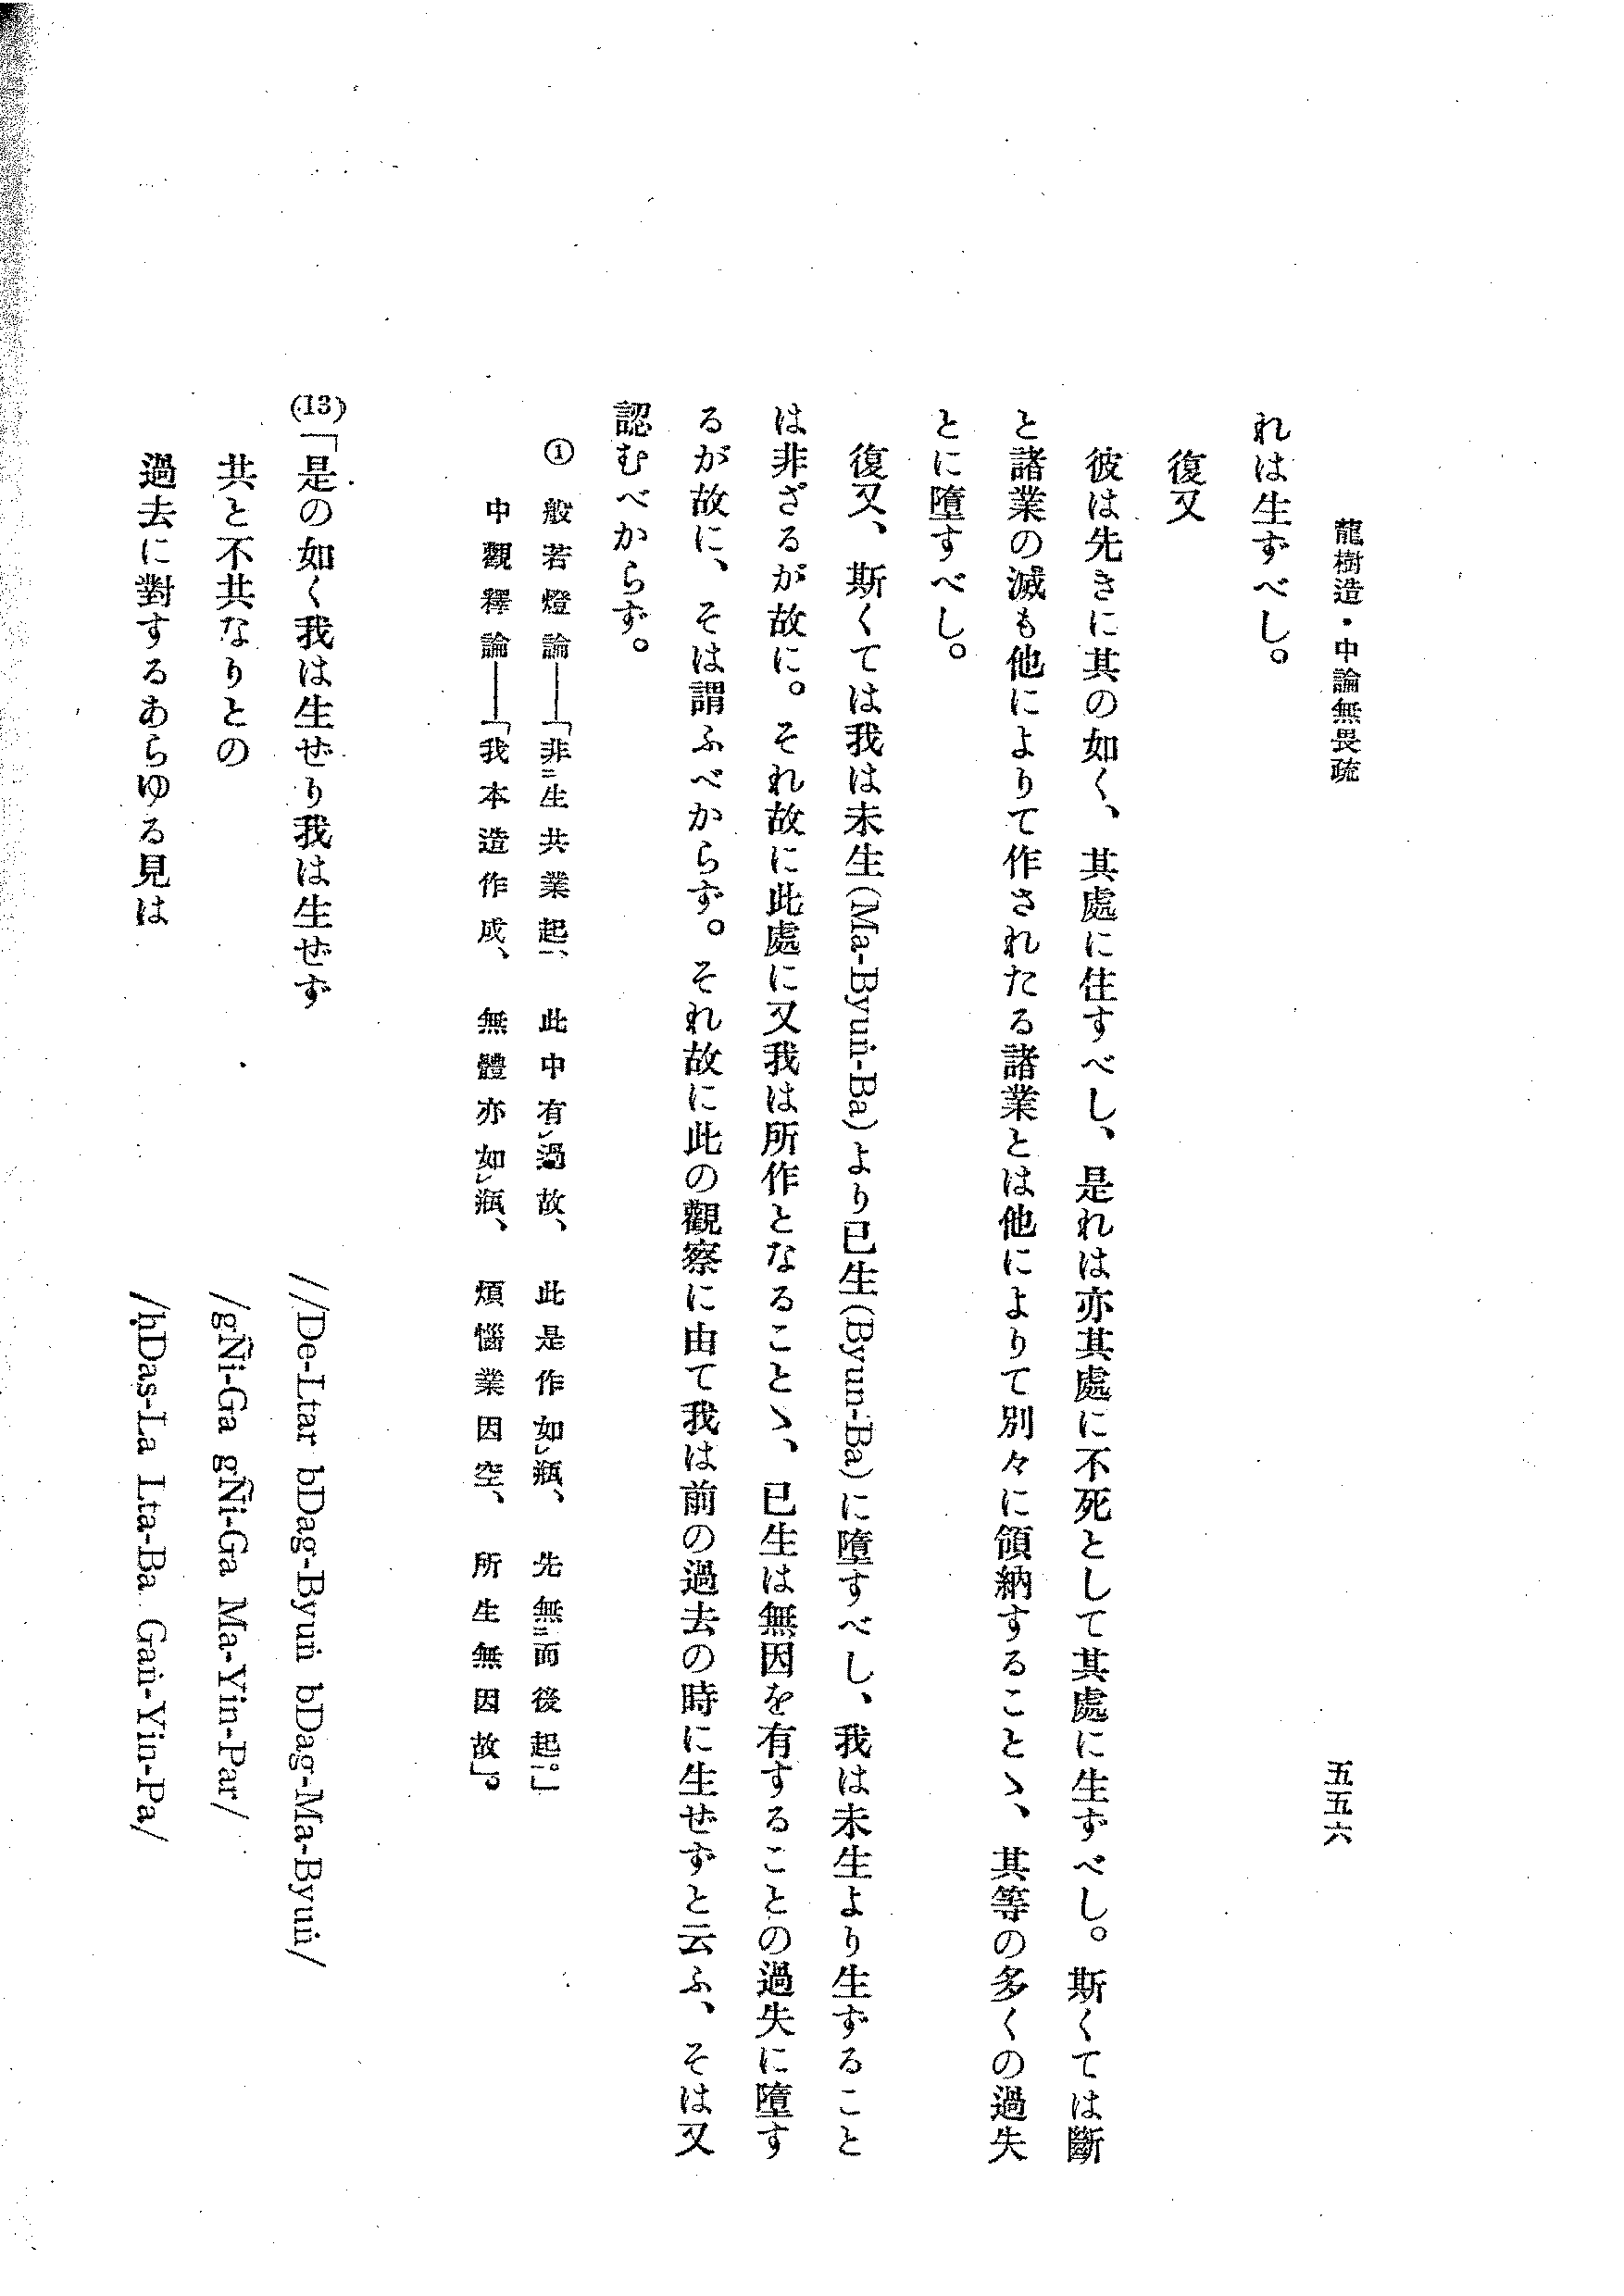 龍樹造・中論無畏疏
五五六
れは生ずべし。
復又
彼は先きに其の如く、其處に住すべし、是れは亦其處に不死として其處に生ずべし。斯くては斷
と諸業の滅も他によりて作されたる諸業とは他によりて別々に領納することゝ、其等の多くの過失
とに墮すべし。
復又、斯くては我は未生(Ma-Byuṅ-Ba)より已生(Byuṅ-Ba)に墮すべし、我は未生より生ずること
は非ざるが故に。それ故に此處に又我は所作となることゝ、已生は無因を有することの過失に墮す
るが故に、そは謂ふべからず。それ故に此の觀察に由て我は前の過去の時に生せずと云ふ、そは又
認むべからず。
① 般若燈論——「非㆓生共業起㆒、此中有㆑過故、此是作如㆑瓶、先無㆓而後起㆒。」
中觀釋論——「我本造作成、無體亦如㆑瓶、煩惱業因空、所生無因故」。
(13)「是の如く我は生ぜり我は生ぜず //De-Ltar bDag-Byuṅ bDag-Ma-Byuṅ/
共と不共なりとの /gÑi-Ga gÑi-Ga Ma-Yin-Par/
過去に對するあらゆる見は /ḥDas-La Lta-Ba Gaṅ-Yin-Pa/